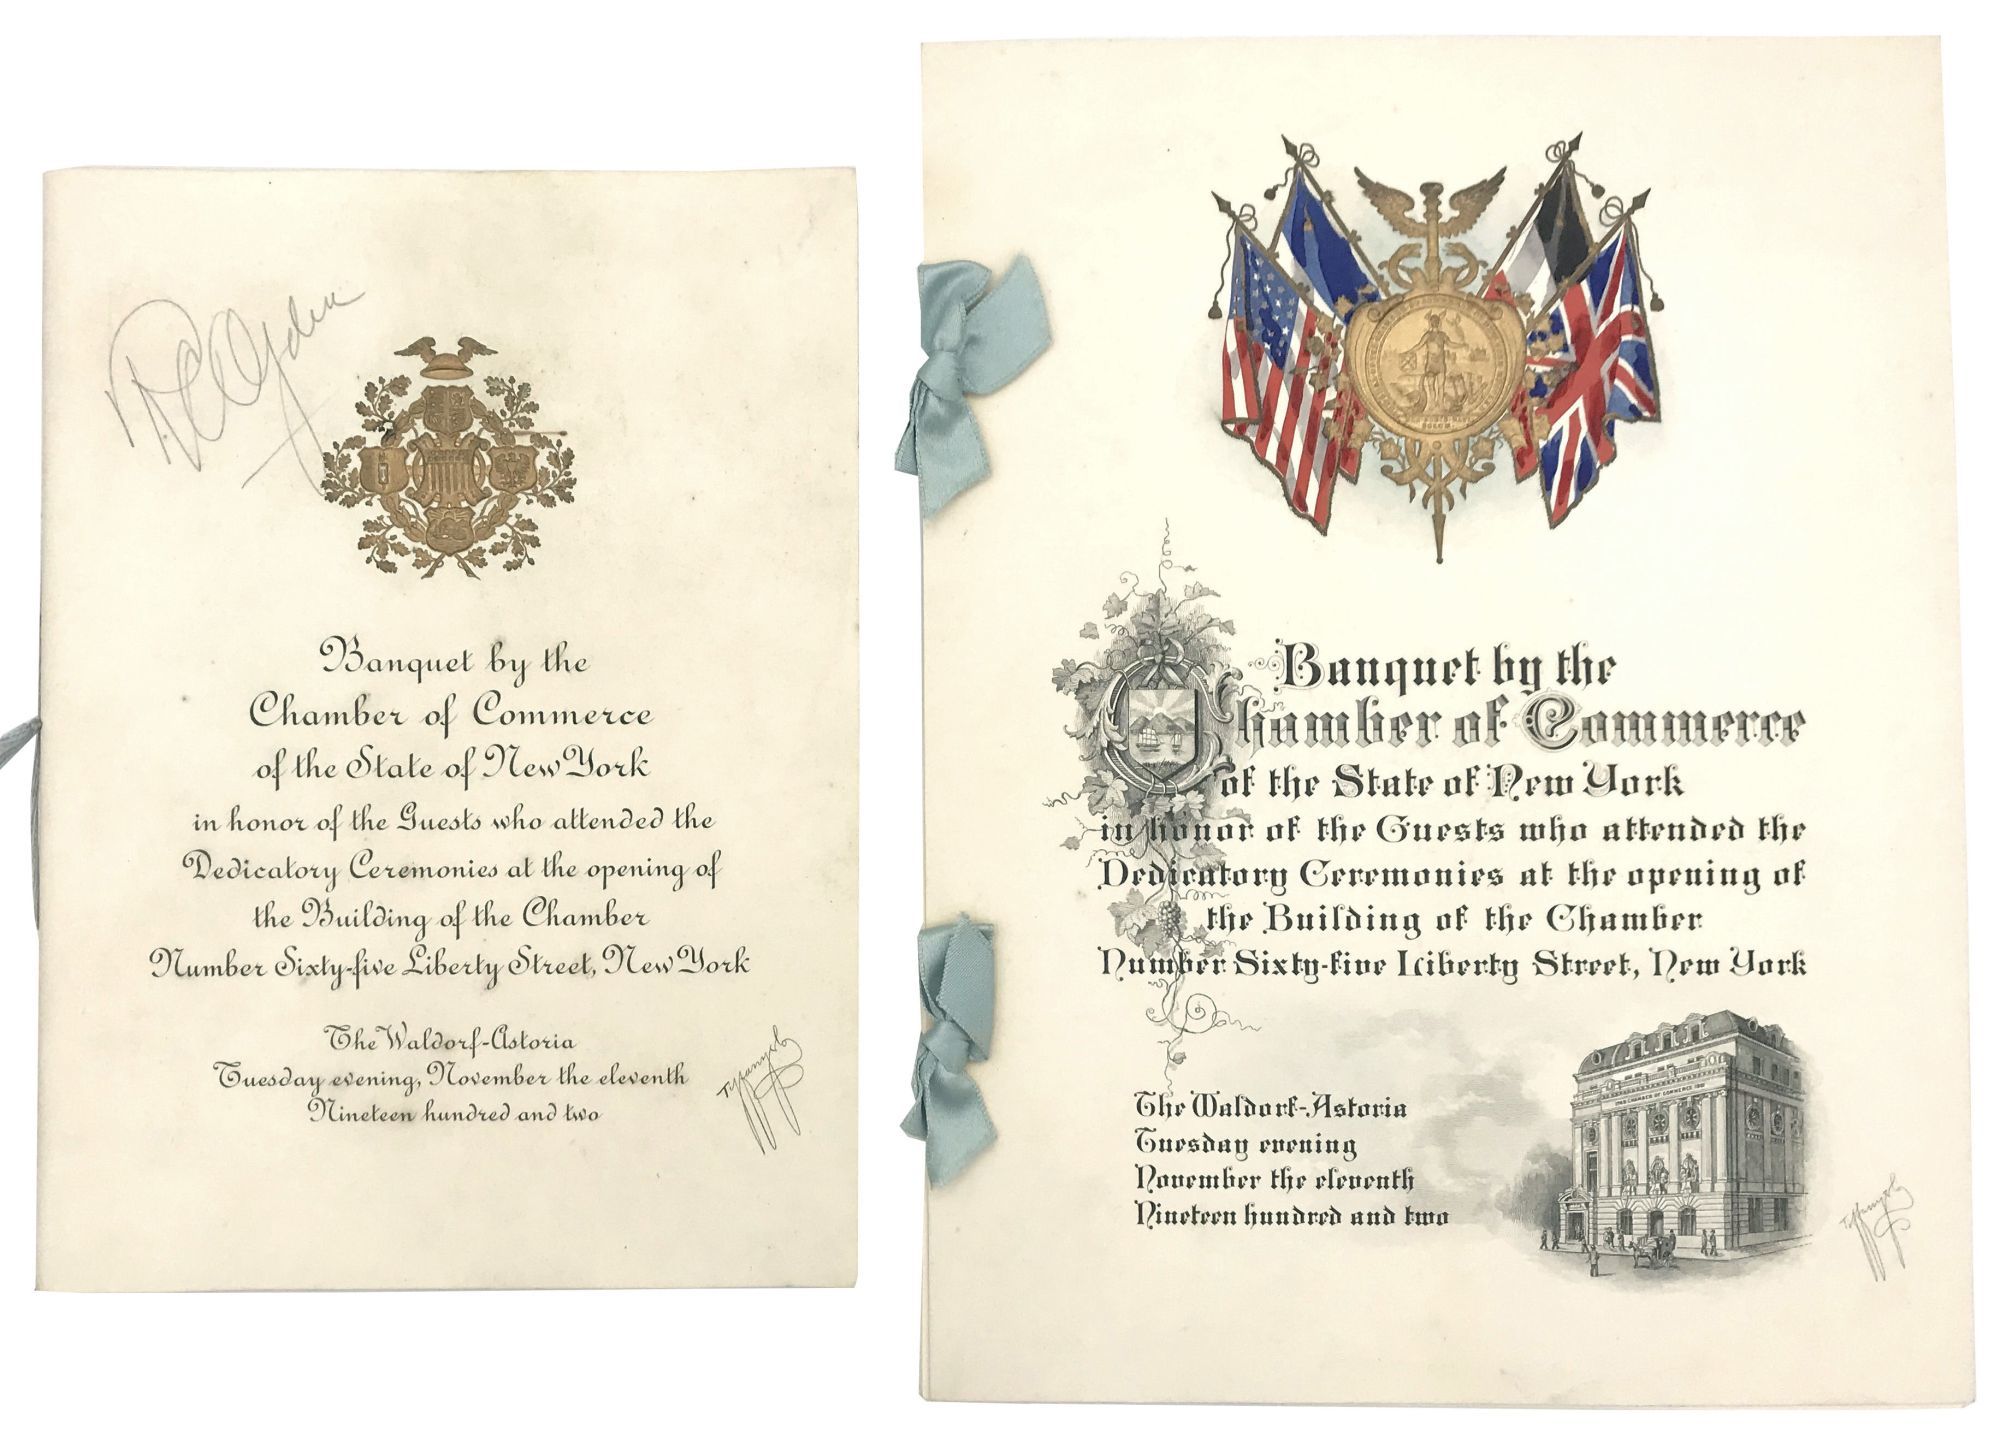 R C Ogden
Banquet by the
Chamber of Commerce
of the State of New York
in honor of the Guests who attended the
Dedicatory Ceremonies at the opening of
the Building of the Chamber
Number Sixty-five Liberty Street, New York
The Waldorf-Astoria
Tuesday evening, November the eleventh
Nineteen hundred and two
Banquet by the
Chamber of Commerce
of the State of New York
in honor of the Guests who attended the
Dedicatory Ceremonies at the opening of
the Building of the Chamber
Number Sixty-five Liberty Street, New York
CHAMBER OF COMMERCE
The Waldorf-Astoria
Tuesday evening
November the eleventh
Nineteen hundred and two